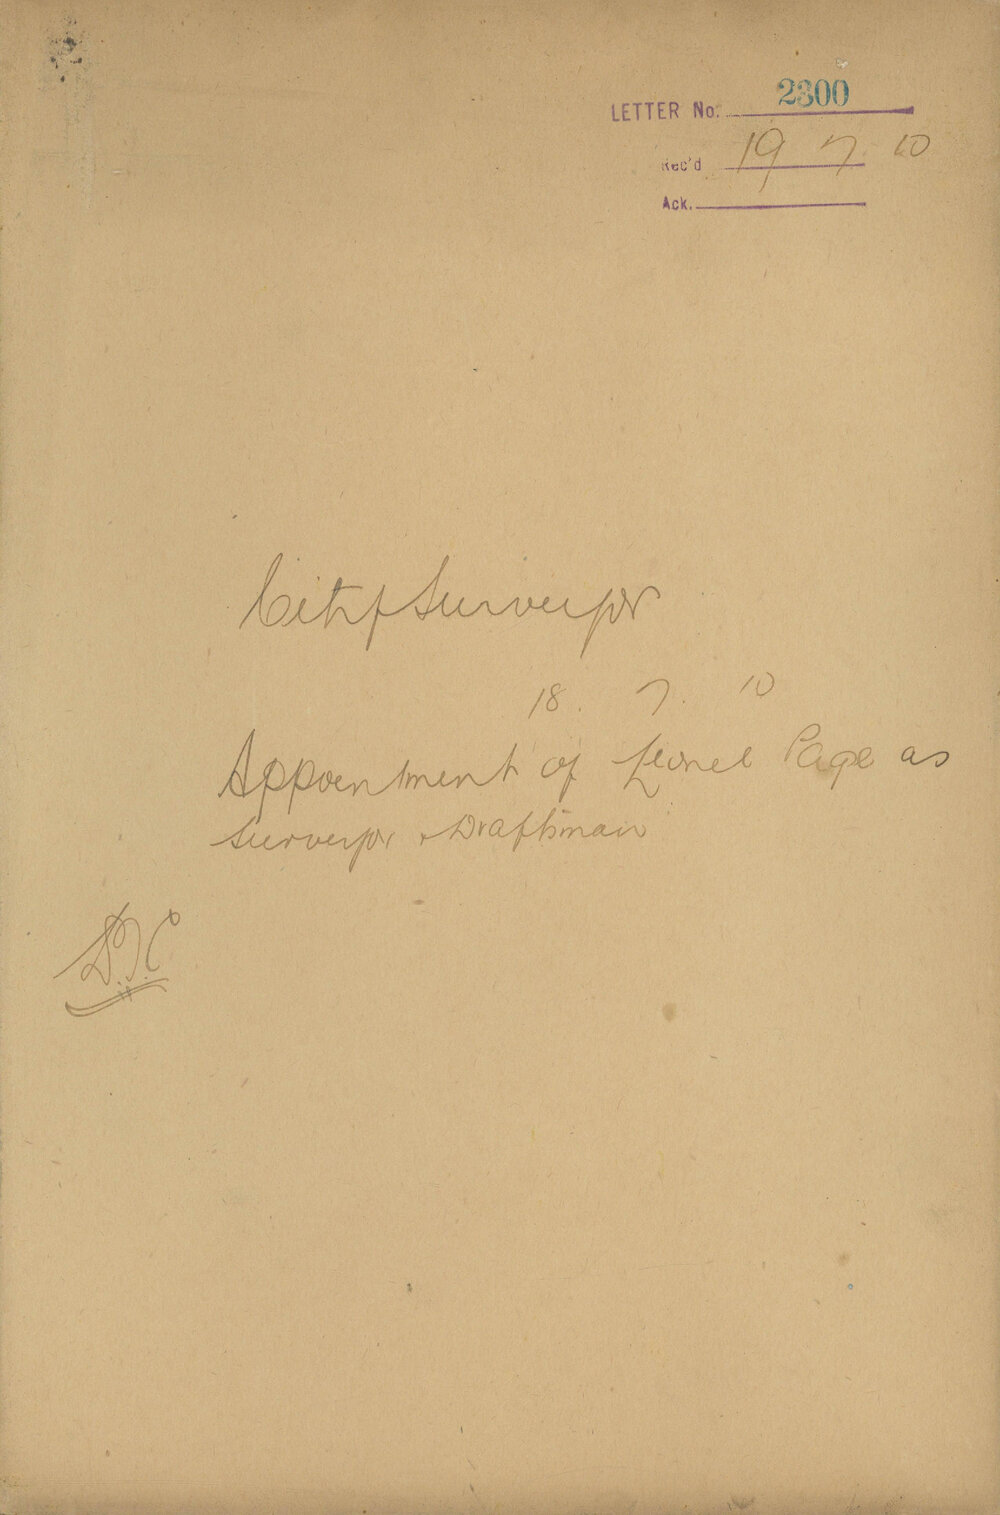 LETTER No. 2300
Rec'd 19 7 10
Ack.
City Surveyor
18. 7. 10
Appointment of Lionel Page as
Surveyor & Draftsman